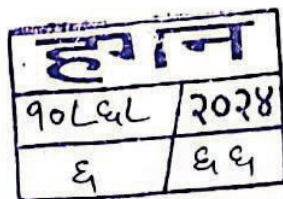 हगन
१०८६८ २०२४
६ ६६